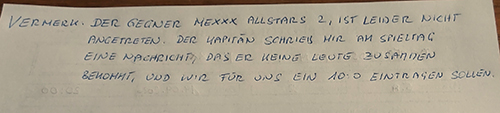 VERMERK: DER GEGNER MEXXX ALLSTARS 2, IST LEIDER NICHT
ANGETRETEN. DER KAPITÄN SCHRIEB MIR AM SPIELTAG
EINE NACHRICHT, DAS ER KEINE LEUTE ZUSAMMEN
BEKOMMT, UND WIR FÜR UNS EIN 10:0 EINTRAGEN SOLLEN.